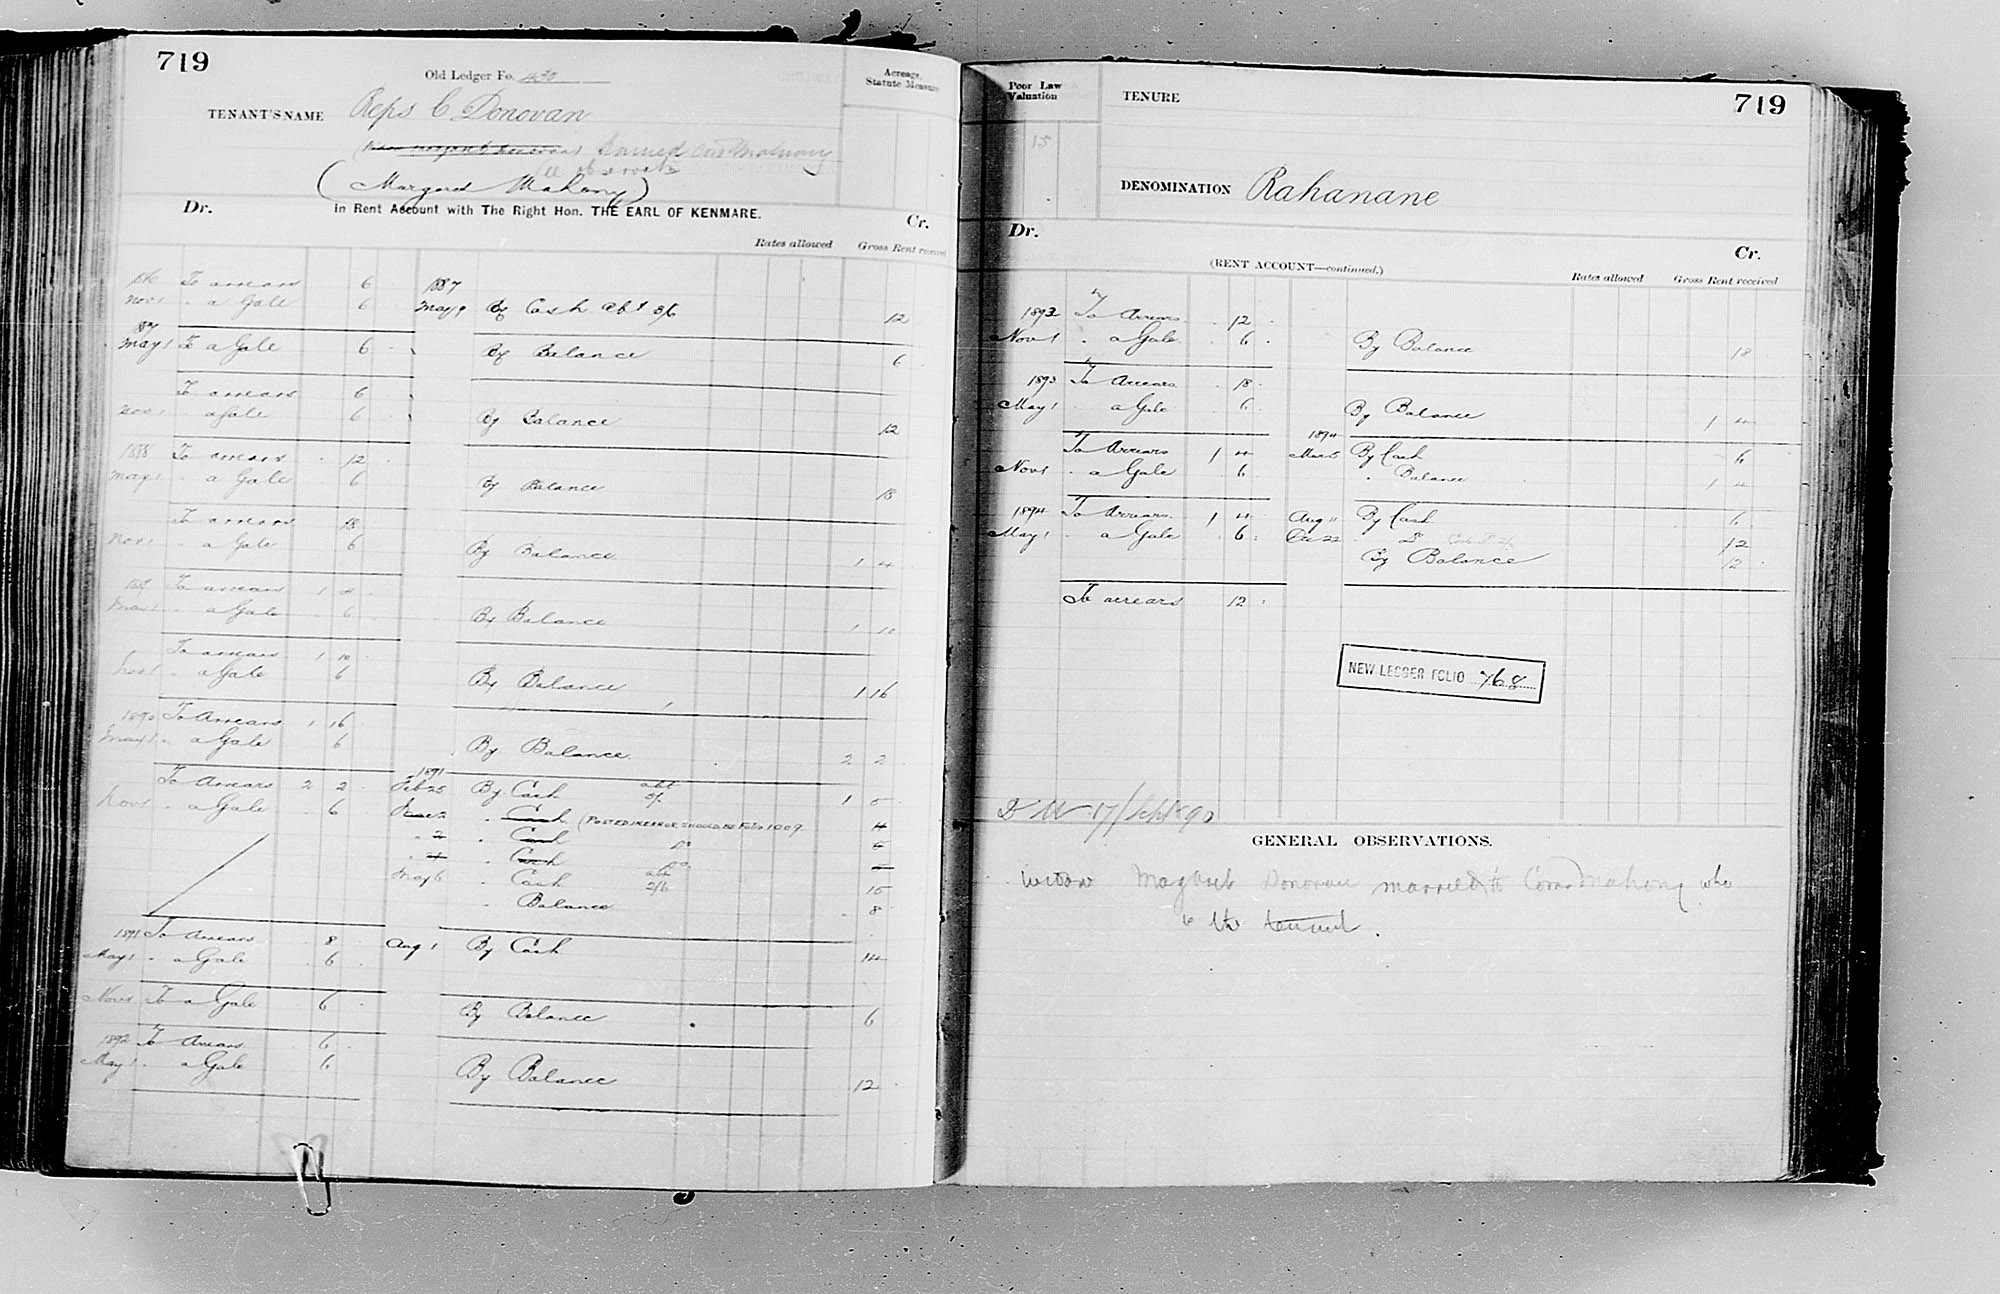 719
Old Ledger Fo.
Acreage, Statute Measure
TENANT'S NAME Reps C Donovan
married Corns Mahony
(Margaret Mahony)
Dr. in Rent Account with The Right Hon. THE EARL OF KENMARE. Cr.
Rates allowed Gross Rent received
1886 To arrears 6 1887
Nov 1 " a Gale 6 May 9 By Cash abt 3/6 12
1887
May 1 To a Gale 6 By Balance 6
To arrears 6
Nov 1 " a Gale 6 By Balance 12
1888 To arrears 12
May 1 " a Gale 6 By Balance 18
To arrears 18
Nov 1 " a Gale 6 By Balance 1 4
1889 To arrears 1 4
May 1 " a Gale 6 By Balance 1 10
To arrears 1 10
Nov 1 " a Gale 6 By Balance 1 16
1890 To Arrears 1 16
May 1 " a Gale 6 By Balance 2 2
1891
To Arrears 2 2 Feb 25 By Cash abt 5/- 1 5
Nov 1 " a Gale 6 " Cash (POSTED IN ERROR, SHOULD BE FOLIO 1009 4
" 2 " Cash Do 6
" Cash Do
May 6 " Cash abt 2/6 15
" Balance 8
1891 To Arrears 8 Aug 1 By Cash 14
May 1 " a Gale 6
Nov 1 To a Gale 6 By Balance 6
1892 To Arrears 6
May 1 " a Gale 6 By Balance 12
Poor Law Valuation
15
TENURE
719
DENOMINATION Rahanane
Dr. Cr.
(RENT ACCOUNT—continued.)
Rates allowed Gross Rent received
1892 To Arrears 12
Nov 1 " a Gale 6 By Balance 18
1893 To Arrears 18
May 1 a Gale 6 By Balance 1 4
1894
To Arrears 1 4 Mar 5 By Cash 6
Nov 1 " a Gale 6 " Balance 1 4
1894 To Arrears 1 4 Aug 11 By Cash 6
May 1 a Gale 6 Oct 22 " Do 12
By Balance 12
To arrears 12
NEW LEDGER FOLIO 768
17/Sept 90
GENERAL OBSERVATIONS.
Widow Margaret Donovan married to Corns Mahony who
is the tenant.